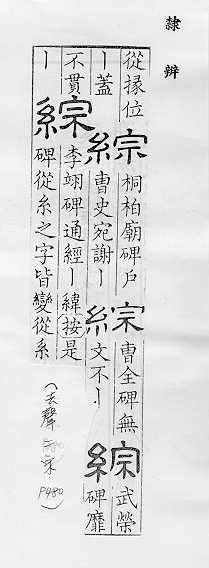 隸辨
從掾位丨蓋綜桐柏廟碑戶曹史宛謝丨綜曹全碑無文不丨綜武榮碑靡
不貫丨綜李翊碑通經丨緯按是碑從糸之字皆變從糸
(去聲 宋 P480)